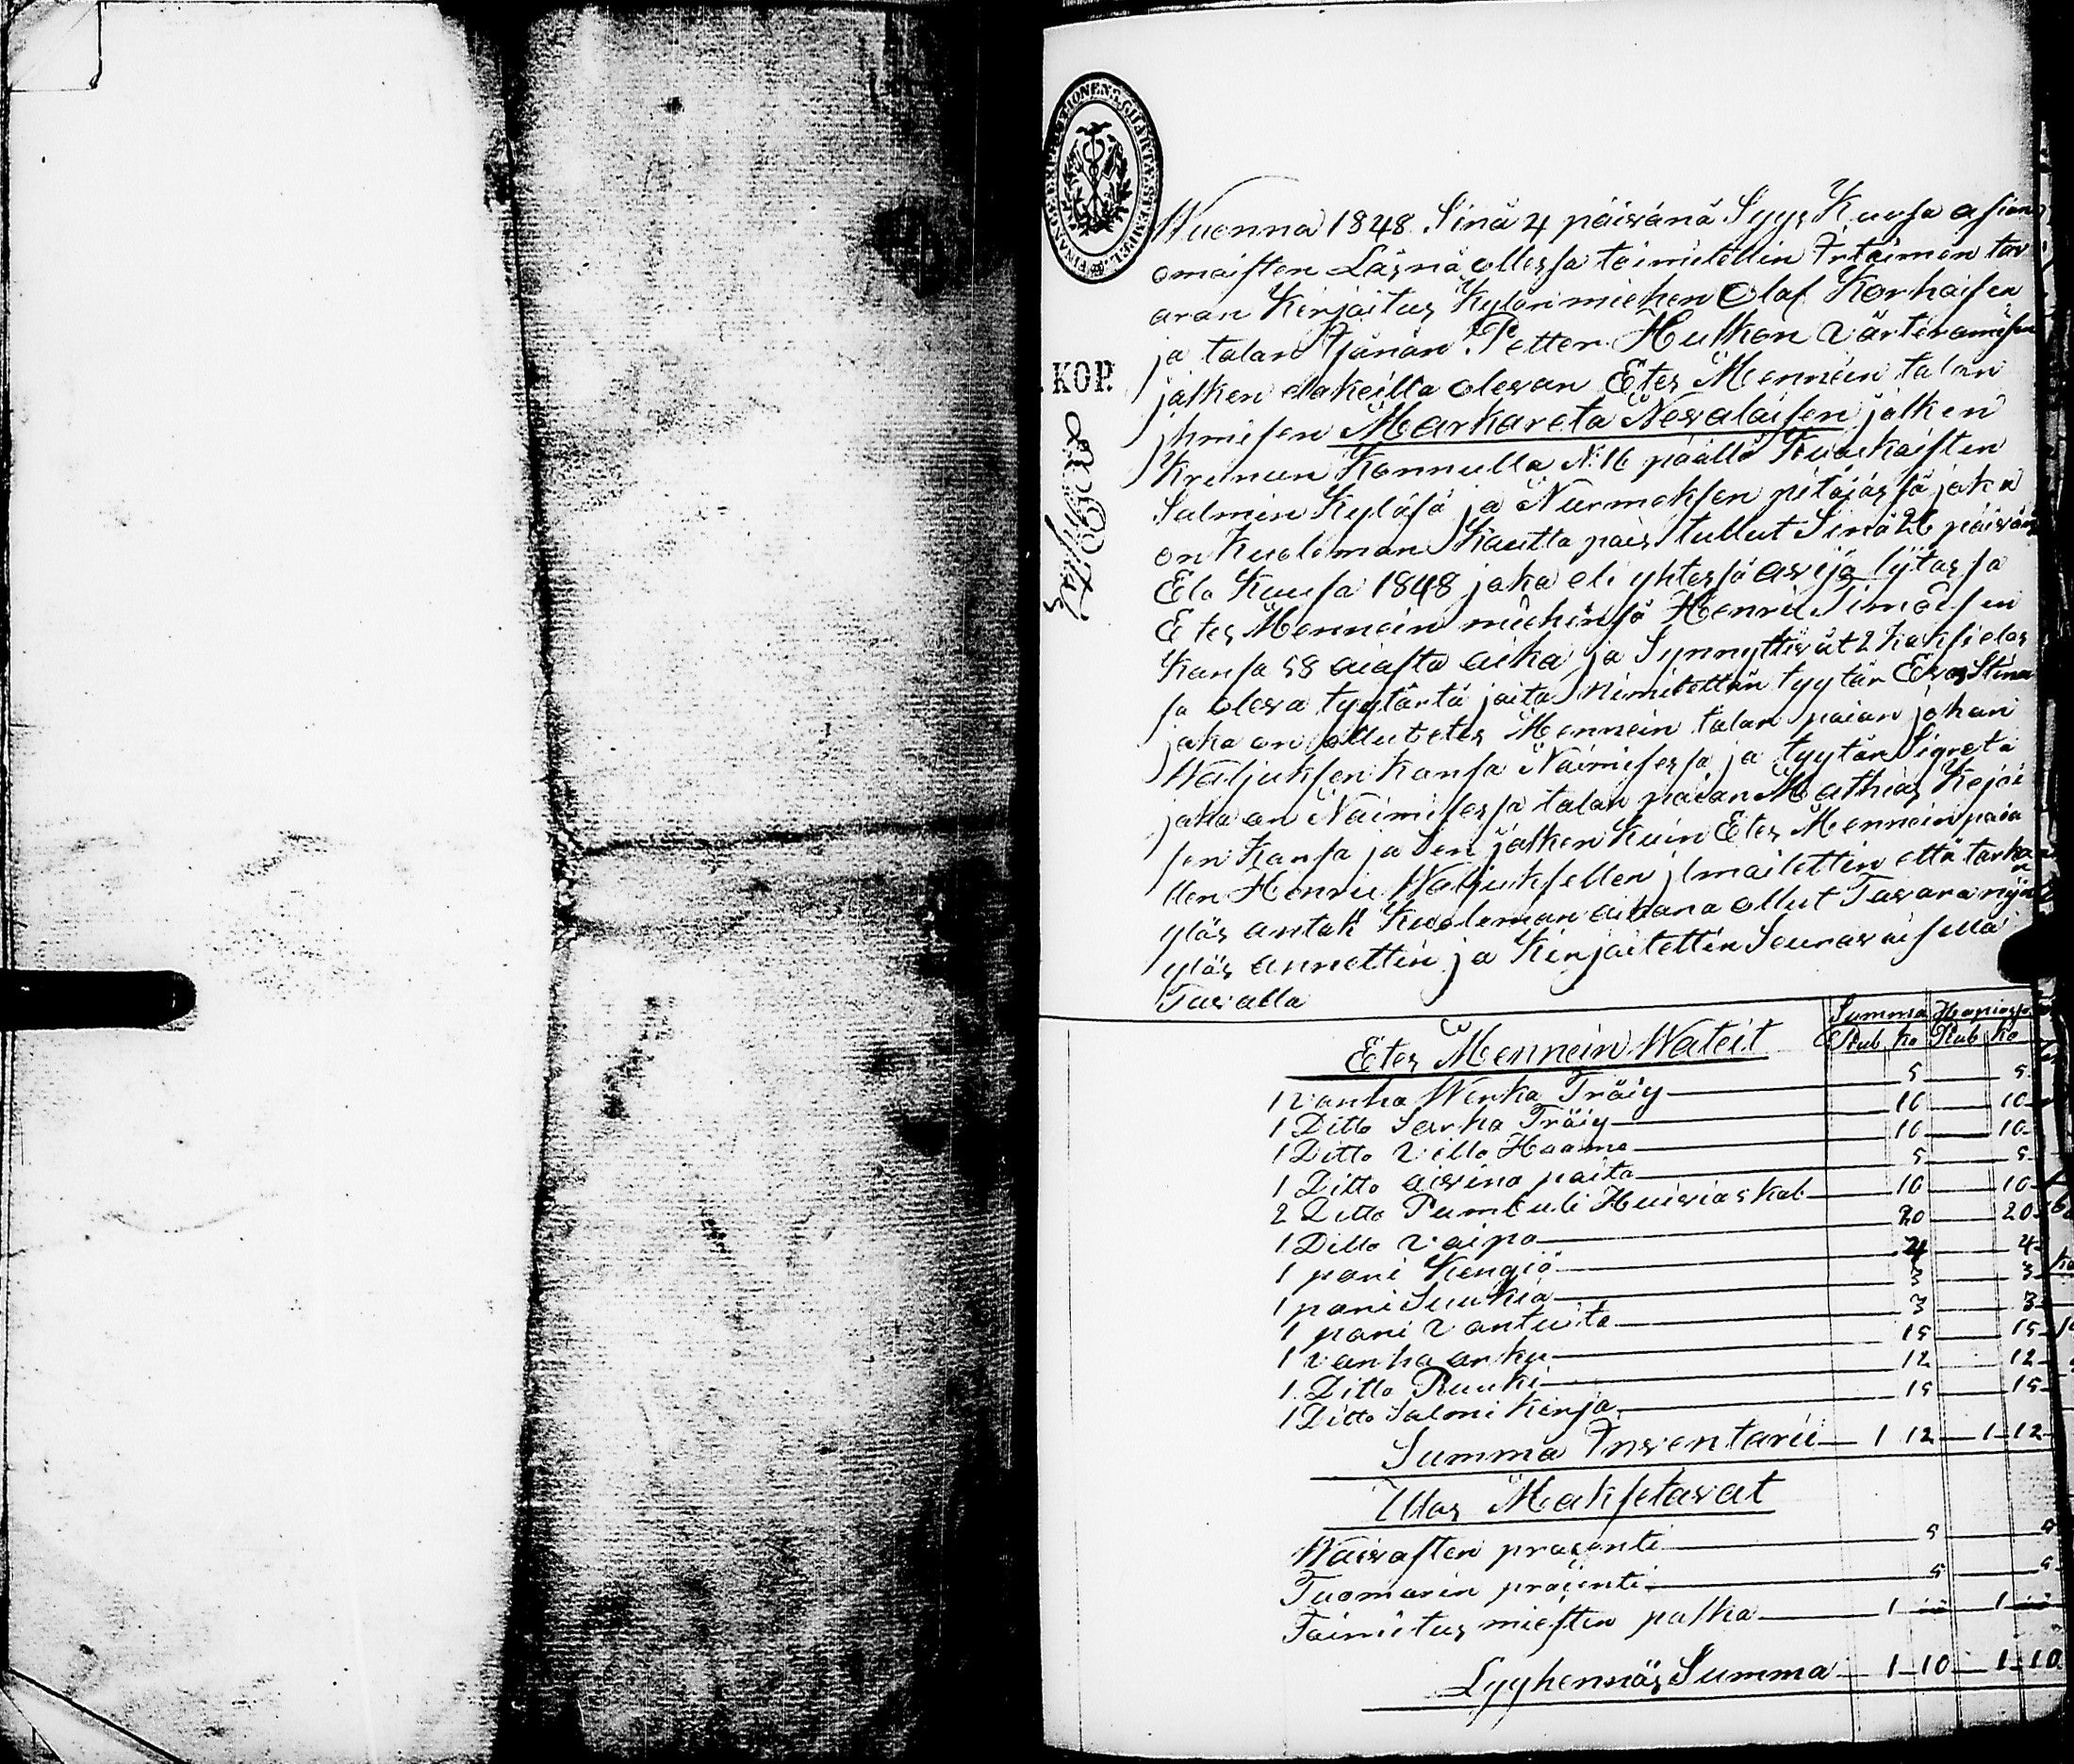 FINANCE EXPEDITIONENS CHARTÆ STEMPEL
KOP.
Wuonna 1848 Sinä 4 päivänä Syys Kuusa asian
omaisten Läsnä ollessa toimitettin Irtaimen tav
aran Kirjoitus Kylänmiehen Olaf Korhoisen
ja talan Isänän Petter Hulkon
jälken elakeilla olevan Etes Mennein talan
jhmisen Markareta Nevalaisen jälken
Krunun Konnulla N:16 päällä
Salmin Kyläsä ja Nurmeksen pitäjässä joka
on Kuoleman Kautta pois tullut Sinä 26 päivänä
Elo Kuusa 1848 joka eli yhtessä avijo
Etes Mennein miehensä Henrik Simoisen
Kansa 58 aiasta aika ja Synnyttivät 2 kaksi elos
sa oleva tyytärtä joita Nimitettän tyytär Eva Stina
joka on ollut etes Mennein talan poian johan
Waljuksen Kansa Naimisessa ja tyytär Sigreta
joka on Naimisessa talan poian Mathias Kejoi
sen Kansa ja Sen jälken Kuin Etes Mennein poia
llen Henric Waljuksellen jlmoitettin että tarka
ylös antak Kuoleman aikana ollut Tavara nijn
ylös annettin ja Kirjoitettin Seuravaisella
Tavalla
Summa Hopiassa
Etes Mennein Wateit Rub ko Rub ko
1 vanha Werka Tröiy 5 5
1 Ditto Sarka Tröiy 10 10
1 Ditto Villa Haame 10 10
1 Ditto aivina paita 5 5
2 Ditto Pumbuli Huivias kal 10 10
1 Ditto Vaipa 20 20
1 pari Kengiä 4 4
1 pari Sukia 3 3
1 pari Vantuita 3 3
1 vanha arku 15 15
1 Ditto Ruuki 12 12
1 Ditto Salmi kirja 15 15
Summa Inventarii 1 12 1 12
Ulos Maksetavat
Waivasten prosenti 5 5
Tuomarin prosenti 5 5
Toimitus miesten palka 1 1
Lyyhennäs Summa 1 10 1 10